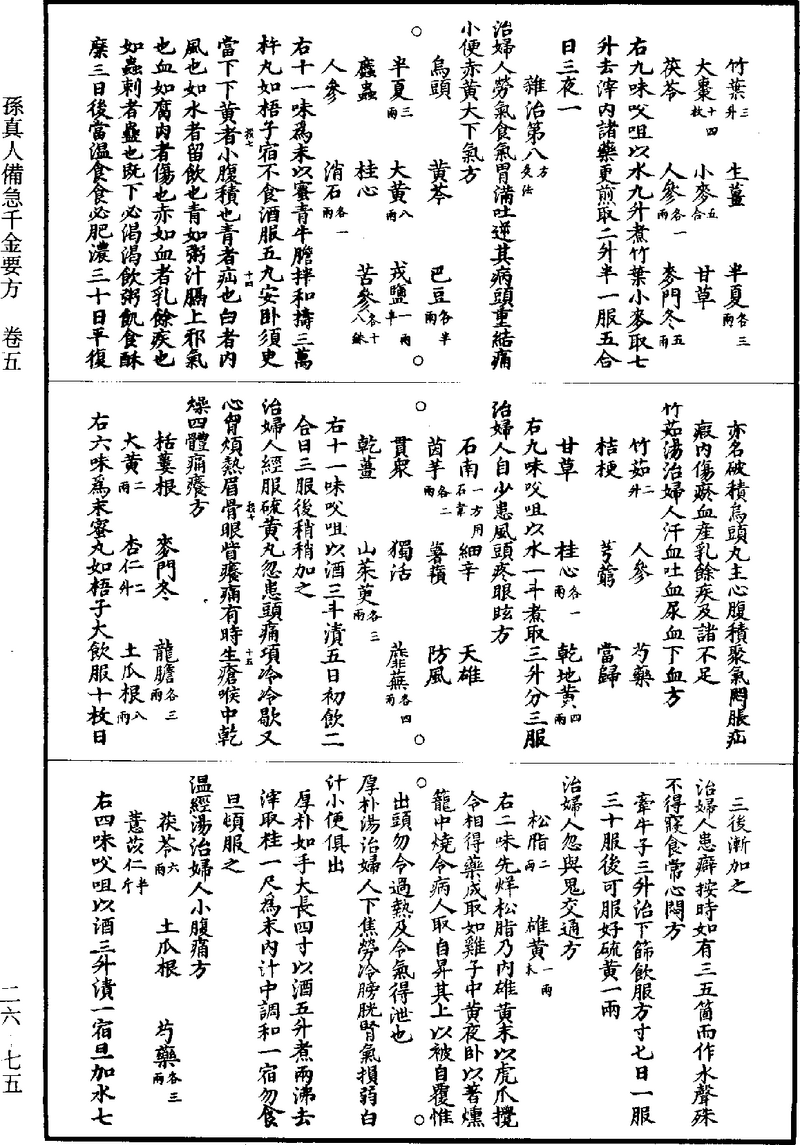 竹葉三升　生薑　半夏各三兩
大棗十四枚　小麥五合　甘草
茯苓　人參各一兩　麥門冬五兩
右九味㕮咀以水九升煮竹葉小麥取七
升去滓内諸藥更煎取二升半一服五合
日三夜一
雜治第八方　灸法
治婦人勞氣食氣胃滿吐逆其病頭重結痛
小便赤黄大下氣方
烏頭　黄芩　巴豆各半兩
半夏三兩　大黄八兩　戎鹽一兩半
䗪蟲　桂心　苦參各十八銖
人參　消石各一兩
右十一味爲末以蜜青牛膽拌和擣三萬
杵丸如梧子宿不食酒服五丸安卧須臾
當下下黄者小腹積也青者疝也白者内
風也如水者留飲也青如粥汁膈上邪氣
也血如腐肉者傷也赤如血者乳餘疾也
如蟲刺者蠱也既下必渴渴飲粥飢食酥
糜三日後當温食食必肥濃三十日平復
亦名破積烏頭丸主心腹積聚氣悶脹疝
瘕内傷瘀血産乳餘疾及諸不足
竹茹湯治婦人汗血吐血尿血下血方
竹茹二升　人參　芍藥
桔梗　芎藭　當歸
甘草　桂心各一兩　乾地黄四兩
右九味㕮咀以水一斗煮取三升分三服
治婦人自少患風頭疼眼眩方
石南一方用石韋　細辛　天雄
茵芋各二兩　薯蕷　防風
貫衆　獨活　蘼蕪各四兩
乾薑　山茱萸各三兩
右十一味㕮咀以酒三斗漬五日初飲二
合日三服後稍稍加之
治婦人經服硫黄丸忽患頭痛項冷冷歇又
心胷煩熱眉骨眼眥癢痛有時生瘡喉中乾
燥四體痛癢方
栝蔞根　麥門冬　龍膽各三兩
大黄二兩　杏仁二升　土瓜根八兩
右六味爲末蜜丸如梧子大飲服十枚日
三後漸加之
治婦人患癖按時如有三五箇而作水聲殊
不得寢食常心悶方
牽牛子三升治下篩飲服方寸匕日一服
三十服後可服好硫黄一兩
治婦人忽與鬼交通方
松脂二兩　雄黄一兩末
右二味先烊松脂乃内雄黄末以虎爪攪
令相得藥成取如雞子中黄夜卧以著燻
籠中燒令病人取自昇其上以被自覆惟
出頭勿令過熱及令氣得泄也
厚朴湯治婦人下焦勞冷膀胱腎氣損弱白
汁小便俱出
厚朴如手大長四寸以酒五升煮兩沸去
滓取桂一尺爲末内汁中調和一宿勿食
旦頓服之
温經湯治婦人小腹痛方
茯苓六兩　土瓜根　芍藥各三兩
薏苡仁半斤
右四味㕮咀以酒三升漬一宿旦加水七
孫真人備急千金要方　卷五
二六－七五